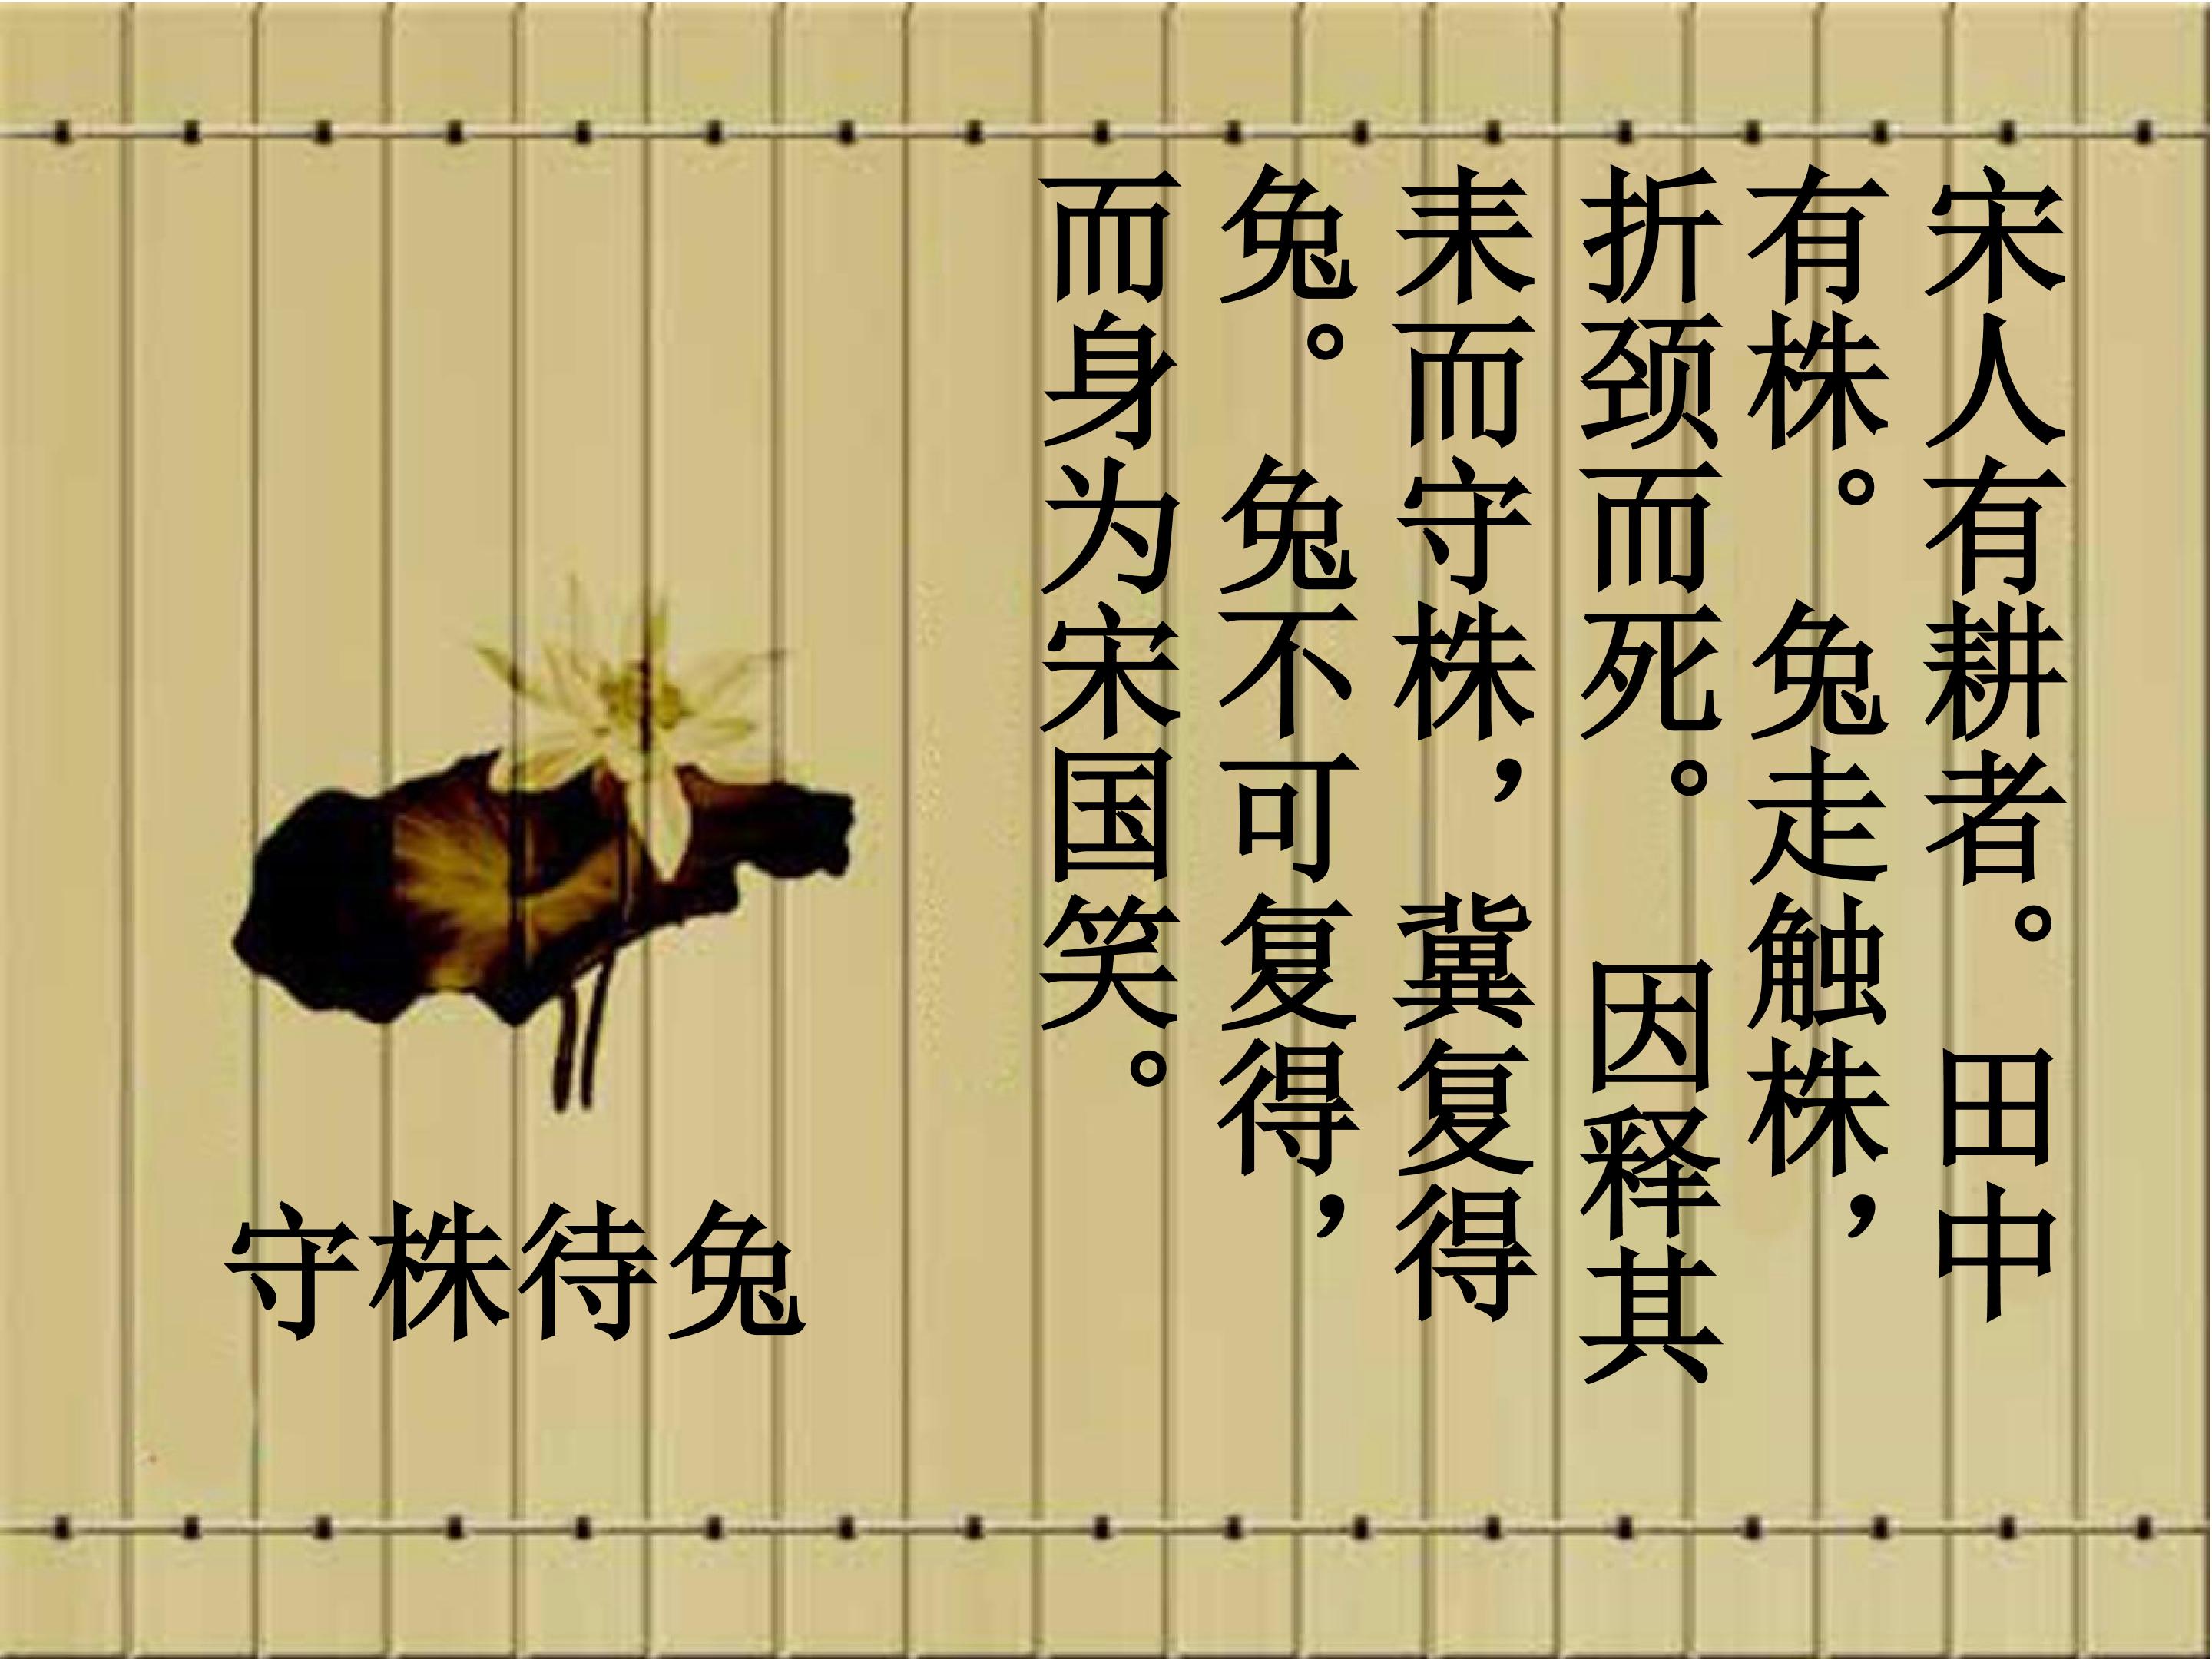 宋人有耕者。田中
有株。兔走触株，
折颈而死。因释其
耒而守株，冀复得
兔。兔不可复得，
而身为宋国笑。
守株待兔